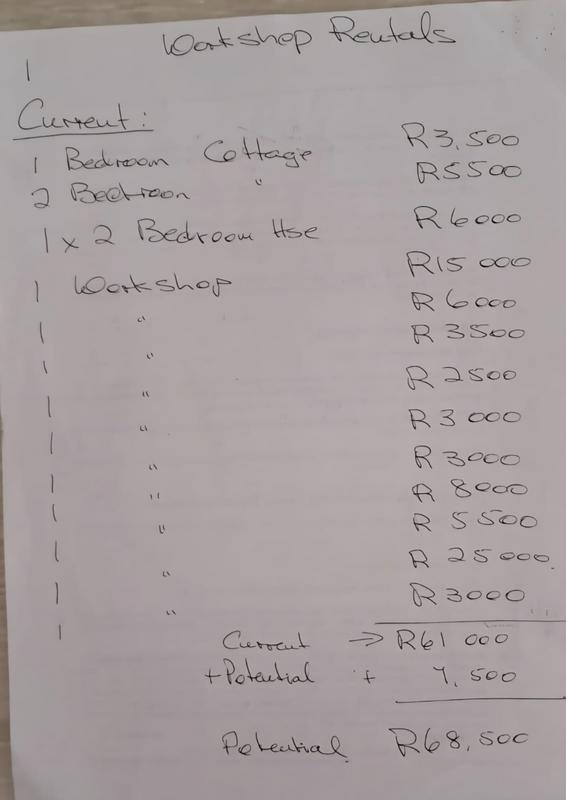 Workshop Rentals
1
Current:
1 Bedroom Cottage R3,500
2 Bedroom " R5500
1 x 2 Bedroom Hse R6000
1 Workshop R15 000
1 " R6000
1 " R3500
1 " R2500
1 " R3 000
1 " R3000
1 " R 8000
1 " R 5 500
1 " R 25 000.
1 R3000
Current → R61 000
+Potential + 7,500
Potential R68,500